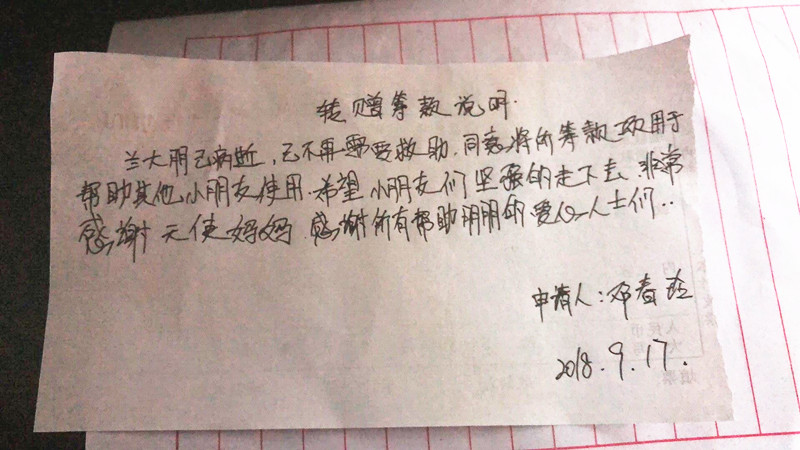 转赠筹款说明.
兰大明已病逝,已不再需要救助.同意将所筹款项用于
帮助其他小朋友使用.希望小朋友们坚强的走下去.非常
感谢天使妈妈 感谢所有帮助明明的爱心人士们..
申请人:邓春玲
2018.9.17.
人民币